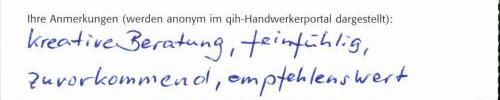 Ihre Anmerkungen (werden anonym im qih-Handwerkerportal dargestellt):
kreative Beratung, feinfühlig,
zuvorkommend, empfehlenswert